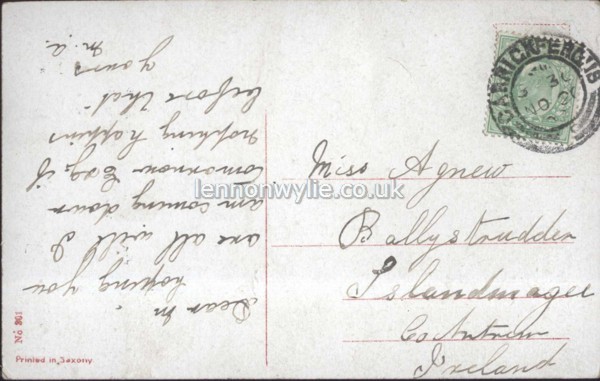 Dear M.
hoping you
are all well I
am coming down
tomorrow if
nothing happens
before that
yours
M. A.
CARRICKFERGUS
NO
Miss Agnew
Ballystrudder
Islandmagee
Co Antrim
Ireland
lennonwylie.co.uk
No 301
Printed in Saxony